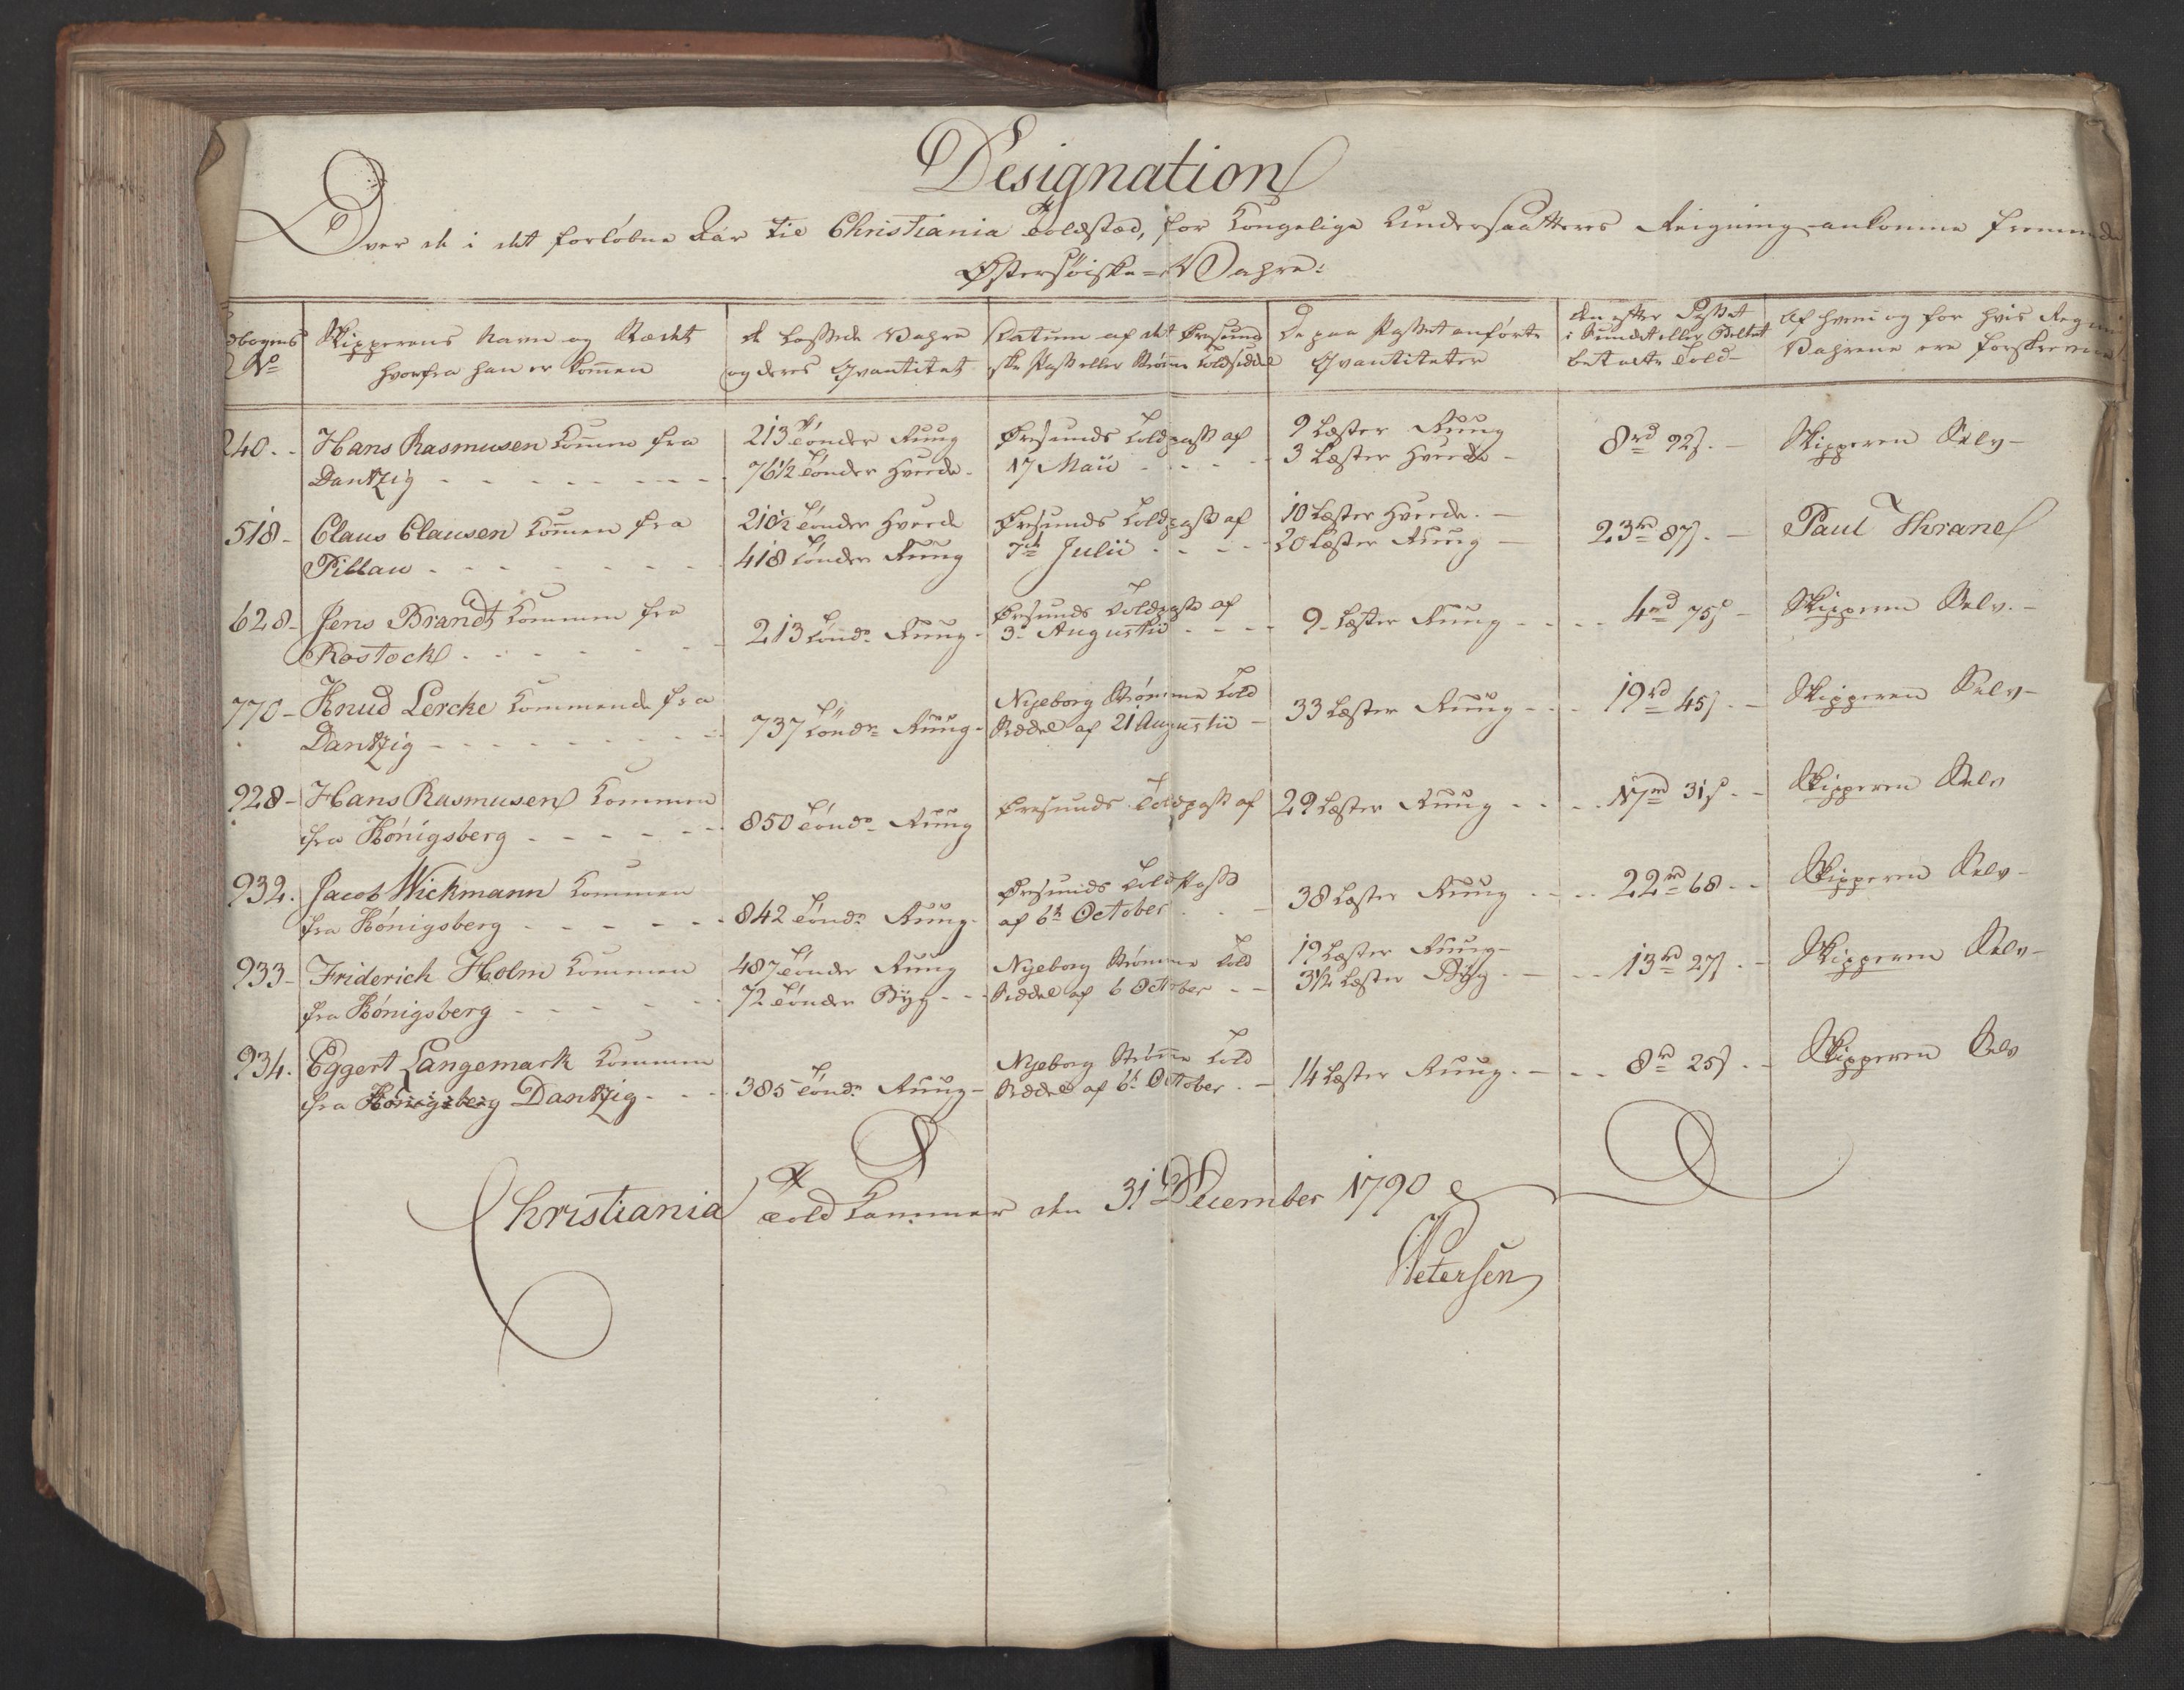 Designation
Over de i det forløbne Aar til Christiania Toldsted, for Kongelige Undersaatteres Reigning ankomne fremmede
Østersøiske Vahre:
dbogens
No
Skipperens Navn og Stædet
hvorfra han er kom̄en
de Lossede Vahre
og deres Qvantitet
Datum af det Øresund
ske Pass eller Strøms Toldseddel
De paa Passet anførte
Qvantiteter
den efter Passet
i Sundet eller Beltet
betalte Told
Af hvem og for hvis Regni
Vahrene ere forskrevne
240.. Hans Rasmusen kom̄en fra
Dantzig
213 Tønder Rug
76½ Tønder Hvede
Øresunds Toldpass af
17 Maii
9 Læster Rug
3 Læster Hvede
8 rd 92 s.
Skipperen Selv
518 Claus Clausen kom̄en fra
Pillau
210½ Tønder Hvede
418 Tønder Rug
Øresunds Toldpass af
7de Julii
10 Læster Hvede
20 Læster Rug
23 rd 87 s.
Paul Thrane
628 Jens Brandt kommen fra
Rostock
213 Tøndr Rug
Øresunds Toldpass af
3 Augustii
9 Læster Rug
4 rd 75 s
Skipperen Selv
770 Knud Lercke kommende fra
Dantzig
737 Tøndr Rug
Nyeborg Strømme Told
Seddel af 21 Augustii
33 Læster Rug
19 rd 45 s
Skipperen Selv
928 Hans Rasmusen kommen
fra Kønigsberg
850 Tøndr Rug
Øresunds Toldpass af
29 Læster Rug
17 rd 31 s
Skipperen Selv
932. Jacob Wickmann kommen
fra Kønigsberg
842 Tøndr Rug
Øresunds Toldpass
af 6te October
38 Læster Rug
22 rd 68
Skipperen Selv
933 Friderich Holm kommen
fra Kønigsberg
487 Tønder Rug
72 Tønder Byg
Nyeborg Strømme Told
Seddel af 6 October
19 Læster Rug
3½ Læster Byg
13 rd 27 s
Skipperen Selv
934. Eggert Langemark kommen
fra Kønigsberg Dantzig
385 Tøndr Rug
Nyeborg Strøm̄e Told
Seddel af 6te October
14 Læster Rug
8 rd 25 s
Skipperen Selv
Christiania Told Kammer den 31 December 1790
Petersen